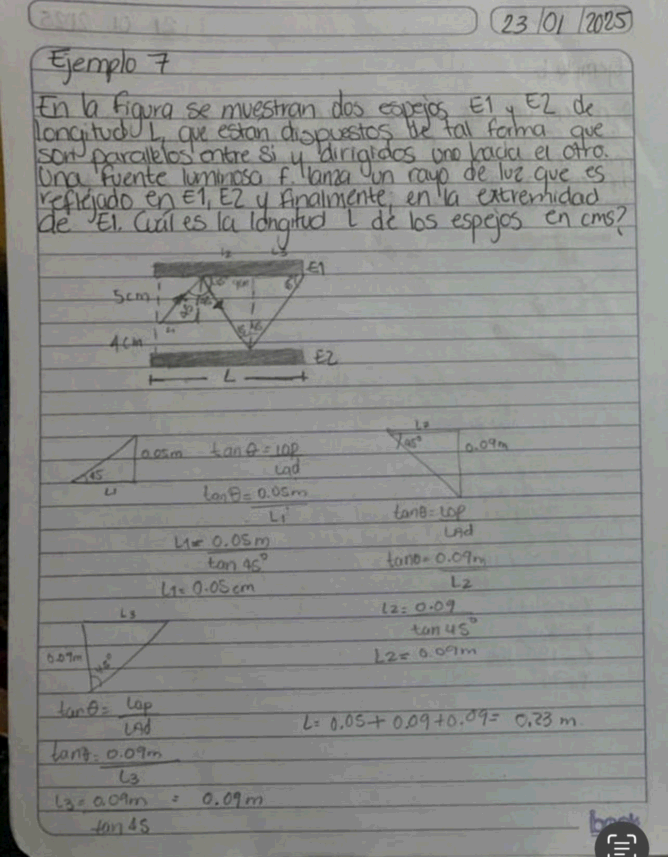 23/01/2025
Ejemplo 7
En la figura se muestran dos espejos E1 y E2 de
longitud L, que estan dispuestos de tal forma que
son parallelos entre si y dirigidos uno hacia el otro.
Una fuente luminosa f. lanza un rayo de luz que es
reflejado en E1, E2 y finalmente, en la extremidad
de E1. Cuál es la longitud L de los espejos en cms?
L2 L3
E1
5cm
45
L1
4cm
E2
L
0.05m
45
L1
tanθ = Lop
Lad
tanθ = 0.05m
L1
L1 = 0.05m
tan 45°
L1 = 0.05cm
L2
45°
0.09m
tanθ = Lop
LAd
tanθ = 0.09m
L2
L2 = 0.09
tan 45°
L2 = 0.09m
L3
0.09m
45°
tanθ = Lop
LAd
tanθ = 0.09m
L3
L3 = 0.09m = 0.09m
tan 45
L = 0.05 + 0.09 + 0.09 = 0.23 m
book